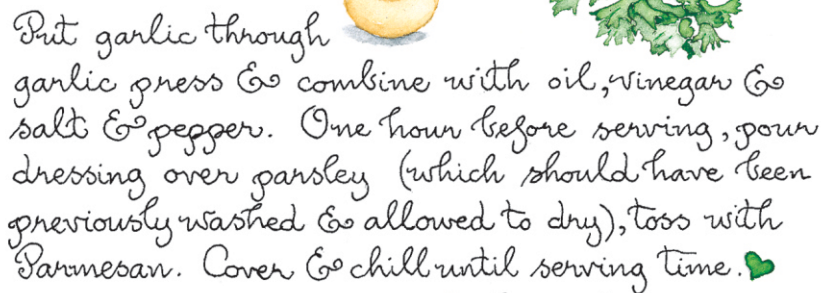 Put garlic through
garlic press & combine with oil, vinegar &
salt & pepper. One hour before serving, pour
dressing over parsley (which should have been
previously washed & allowed to dry), toss with
Parmesan. Cover & chill until serving time.